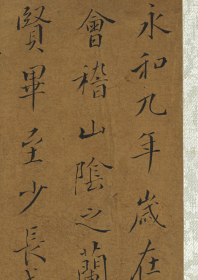 永和九年歲在
會稽山陰之蘭
賢畢至少長